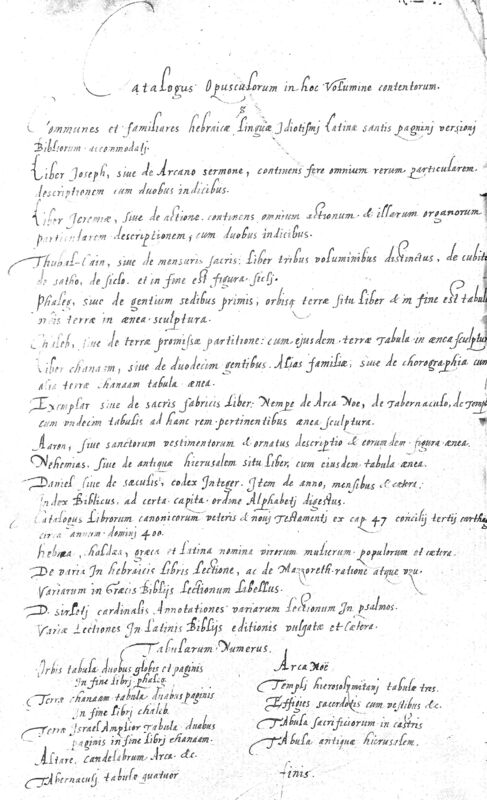 Catalogus Opusculorum in hoc Volumine contentorum.
Communes et familiares hebraicæ Linguæ Idiotismj Latinæ santis paginj versionj
Bibliorum accommodatj.
Liber Joseph, siue de Arcano sermone, continens fere omnium rerum particularem
descriptionem cum duobus indicibus.
Liber Jeremiæ, siue de actione. continens omnium actionum & illarum organorum
particularem descriptionem, cum duobus indicibus.
Thubal-Cain, siue de mensuris sacris: Liber tribus voluminibus distinctus, de cubito
de satho, de siclo. et in fine est figura siclj.
Phaleg, siue de gentium sedibus primis, orbisq terræ situ Liber & in fine est tabula
orbis terræ in ænea sculptura.
Chaleb, siue de terræ promissæ partitione: cum ejusdem terræ Tabula in ænea sculptura
Liber chanaam, siue de duodecim gentibus. Alias familiæ, siue de chorographia cum
alia terræ chanaam tabula ænea.
Exemplar siue de sacris fabricis Liber: Nempe de Arca Noe, de Tabernaculo, de Templo
cum vndecim tabulis ad hanc rem pertinentibus ænea sculptura.
Aaron, siue sanctorum vestimentorum & ornatus descriptio & eorumdem figura ænea.
Nehemias. siue de antiquæ hierusalem situ Liber, cum eiusdem tabula ænea.
Daniel siue de sæculis, codex Integer. Item de anno, mensibus & cætera;
Index Biblicus ad certa capita ordine Alphabetj digestus.
Catalogus Librorum canonicorum veteris & nouj Testamentj ex cap 47 concilij tertij carthag
circa annum dominj 400.
hebræa, chaldæa, græca et Latina nomina virorum mulierum populorum et cætera.
De varia In hebraicis Libris Lectione, ac de Mazzoreth ratione atque vzu.
Variarum in Græcis Biblijs Lectionum Libellus.
D. sirletj cardinalis Annotationes variarum Lectionum In psalmos.
Variæ Lectiones In Latinis Biblijs editionis vulgatæ et Cætera.
Tabularum Numerus.
Orbis tabula duobus globis et paginis
In fine librj phaleg
Terræ chanaam tabula duabus paginis
In fine librj chaleb
Terræ Israel Amplior Tabula duabus
paginis in fine librj chanaam
Altare, candelabrum Arca &c.
TAbernaculj tabulæ quatuor
Arca Noë
Templj hierosolymitanj tabulæ tres.
Effigies sacerdotis cum vestibus &c.
TAbula sacrificiorum in castris
TAbula antiquæ hierusalem.
finis.